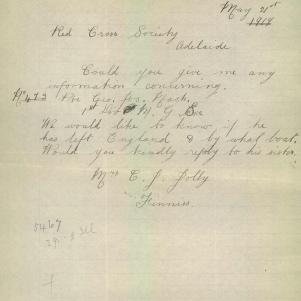 May 21st
1919
Red Cross Society
Adelaide
Could you give me any
information concerning.
No 473 Pte Geo. Jos. Nash.
1st M. G.
We would like to know if he
has left England & by what boat.
Would you kindly reply to his sister.
Mrs E. J. Jolly
Finniss.
5469